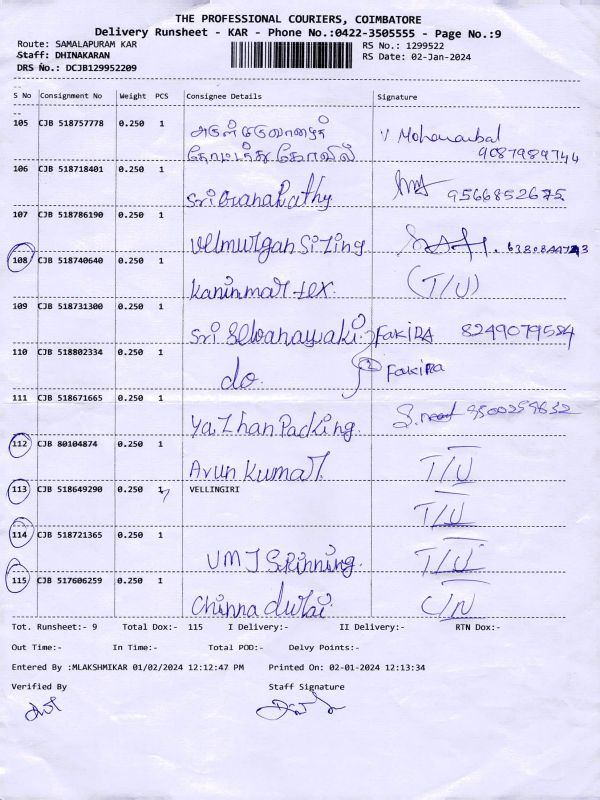 THE PROFESSIONAL COURIERS, COIMBATORE
Delivery Runsheet - KAR - Phone No.:0422-3505555 - Page No.:9
Route: SAMALAPURAM KAR RS No.: 1299522
Staff: DHINAKARAN RS Date: 02-Jan-2024
DRS No.: DCJB129952209
S No Consignment No Weight PCS Consignee Details Signature
105 CJB 518757778 0.250 1 அருள் V Mohanambal
தோட்டத்து கோவில் 9087989744
106 CJB 518718401 0.250 1
Sri Ganapathy 9566852675
107 CJB 518786190 0.250 1
Velmurgan Sizing
108 CJB 518740640 0.250 1
Kaninmar tex. (T/U)
109 CJB 518731300 0.250 1
Sri Selvanayaki. FAKIRA 8249079584
110 CJB 518802334 0.250 1
do. 2 FAKIRA
111 CJB 518671665 0.250 1
Yazhan Packing. 9500259632
112 CJB 80104874 0.250 1
Arun Kumar. T/U
113 CJB 518649290 0.250 1 VELLINGIRI
T/U
114 CJB 518721365 0.250 1
UMJ Spinning. T/U
115 CJB 517606259 0.250 1
Chinna durai C/N
Tot. Runsheet:- 9 Total Dox:- 115 I Delivery:- II Delivery:- RTN Dox:-
Out Time:- In Time:- Total POD:- Delvy Points:-
Entered By :MLAKSHMIKAR 01/02/2024 12:12:47 PM Printed On: 02-01-2024 12:13:34
Verified By Staff Signature